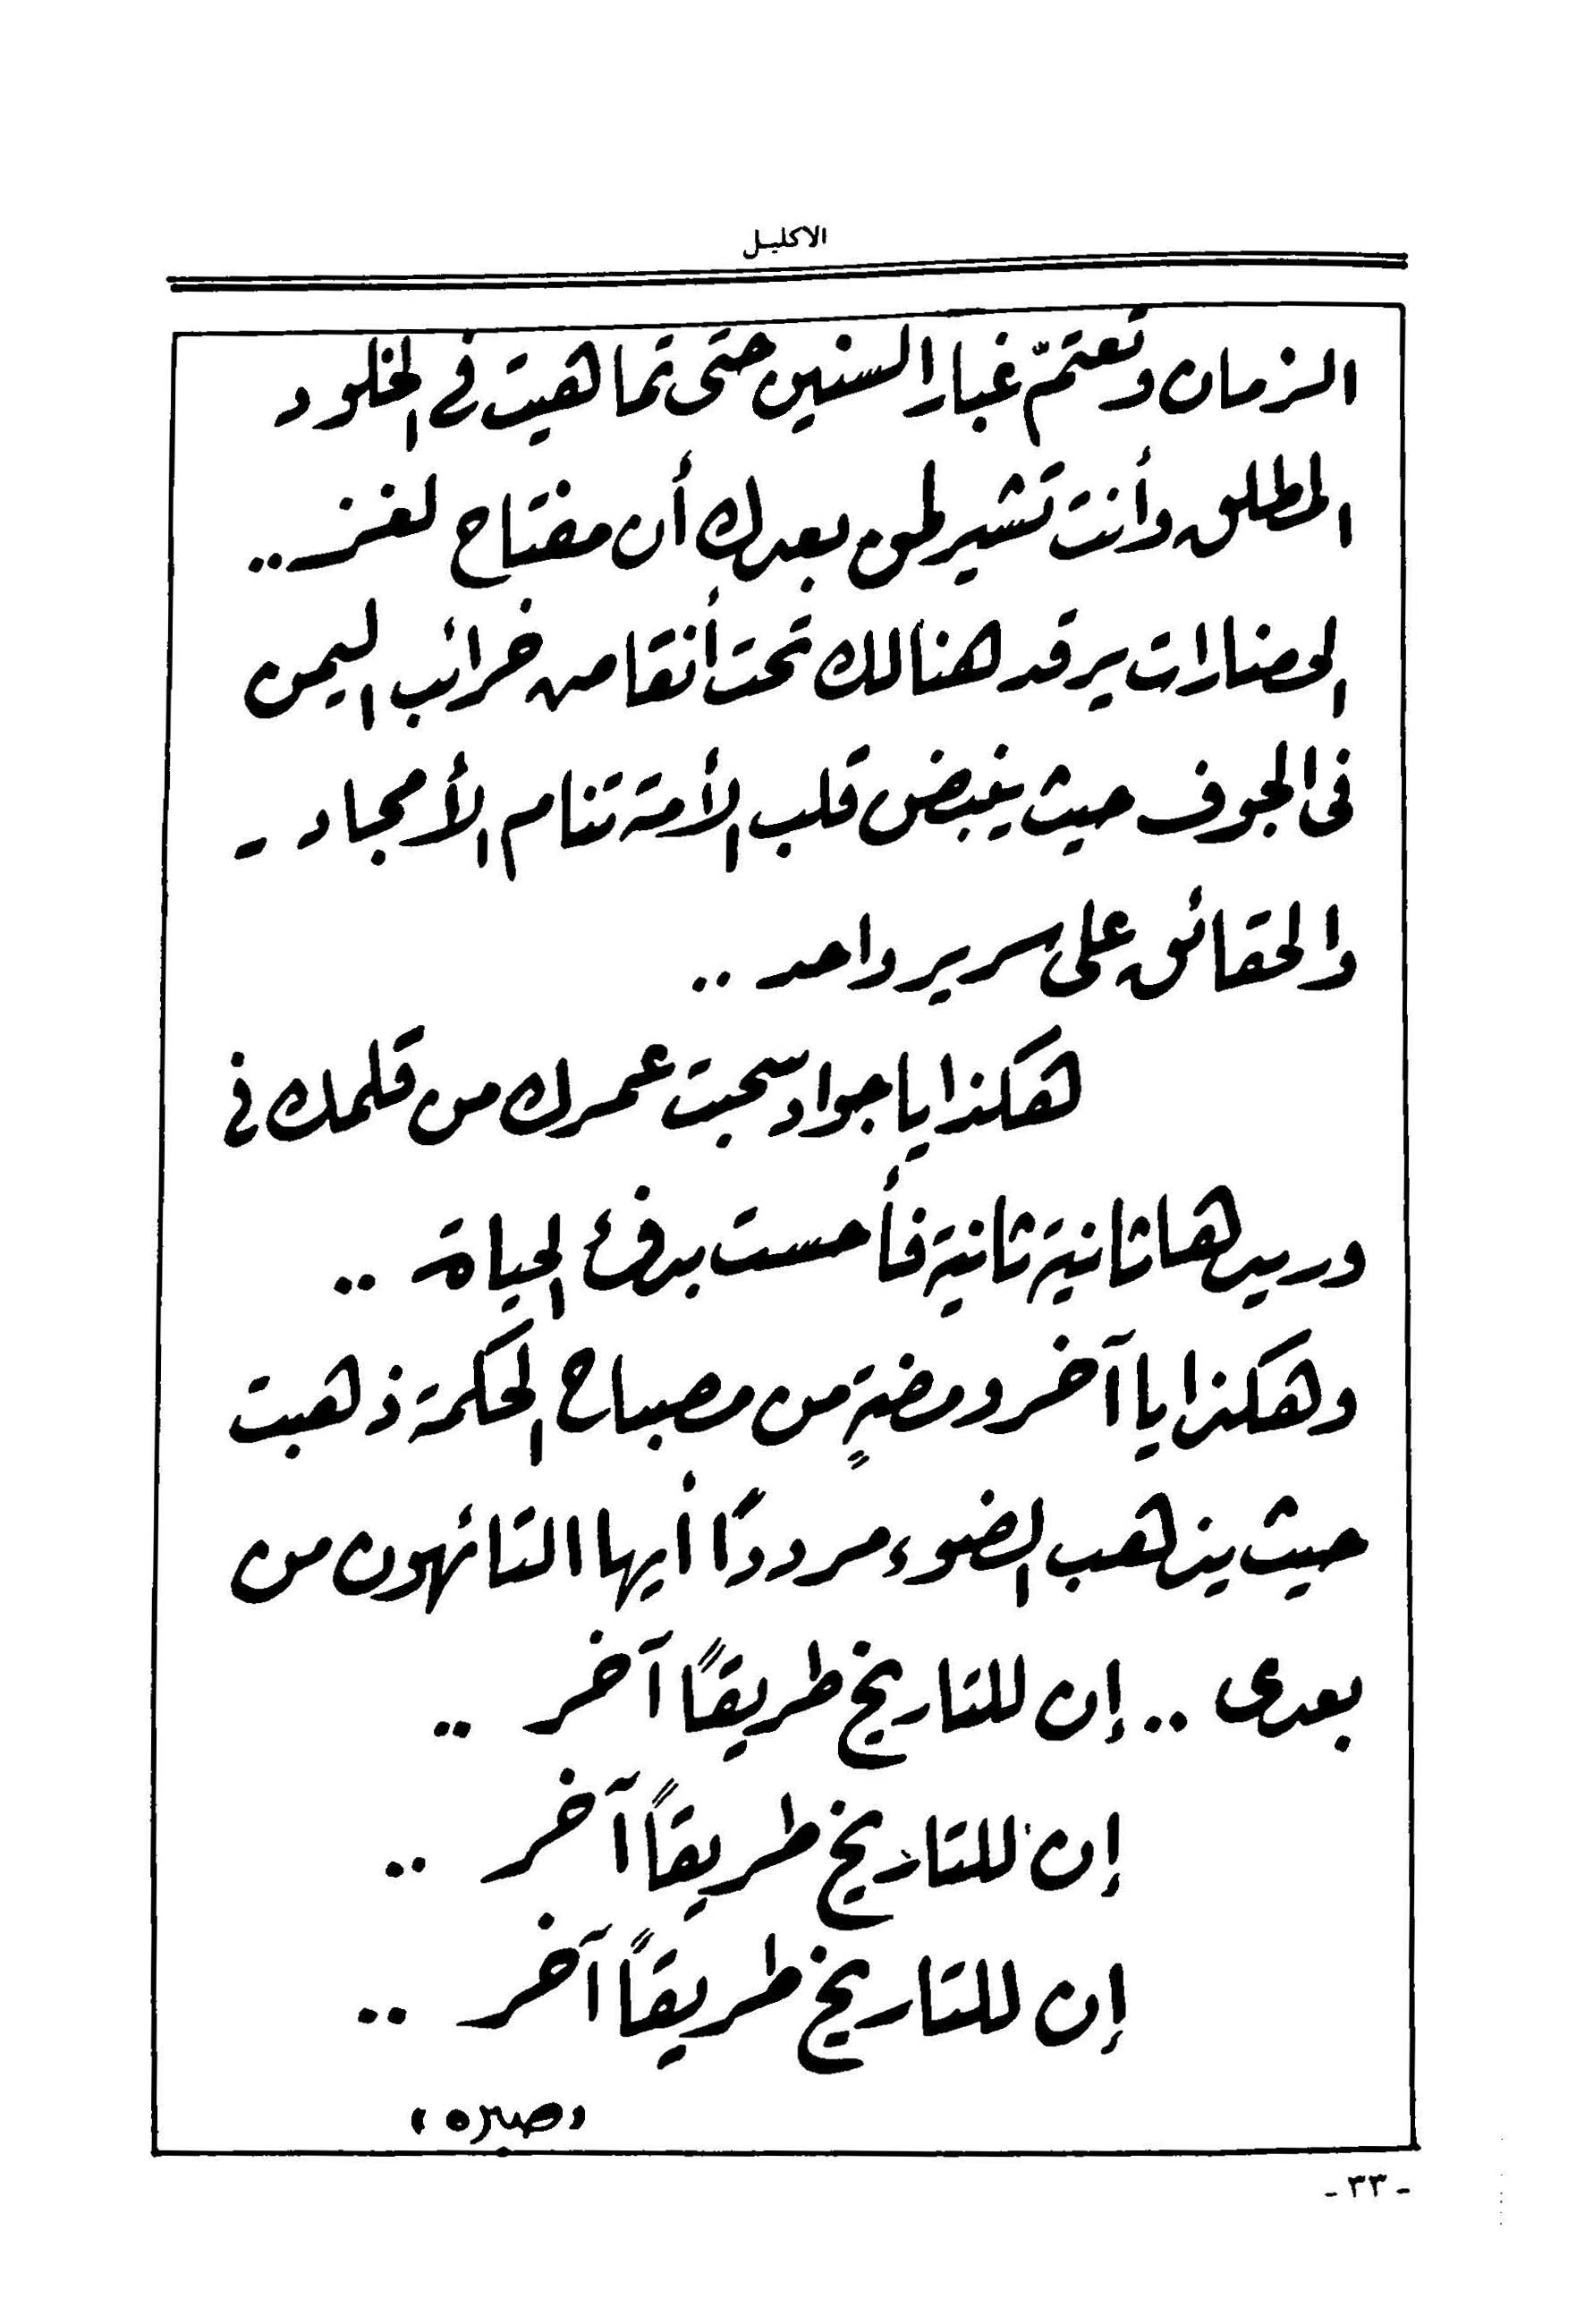 الاكليل
الزمان وتعتمّ غبار السنين حتى تماهيت في الخلود
المطلق وأنت تشير لمن بعدك أن مفتاح لغز ..
الحضارات يرقد هنالك تحت أنقاض خرائب اليمن
في الجوف حيث ينبض قلب الأمة تنام الأمجاد -
والحقائق على سرير واحد ..
هكذا يا جواد سحبت عمرك من قلمك في
وريدها ثانية ثانية فأحست بدفء الحياة ..
وهكذا يا آخر ومضةٍ من مصباح الحكمة ذهبت
حيث يذهب الضوء مردداً أيها التائهون من
بعدى .. إن للتاريخ طريقاً آخر ..
إن للتاريخ طريقاً آخر ..
إن للتاريخ طريقاً آخر ..
- ٣٣ -